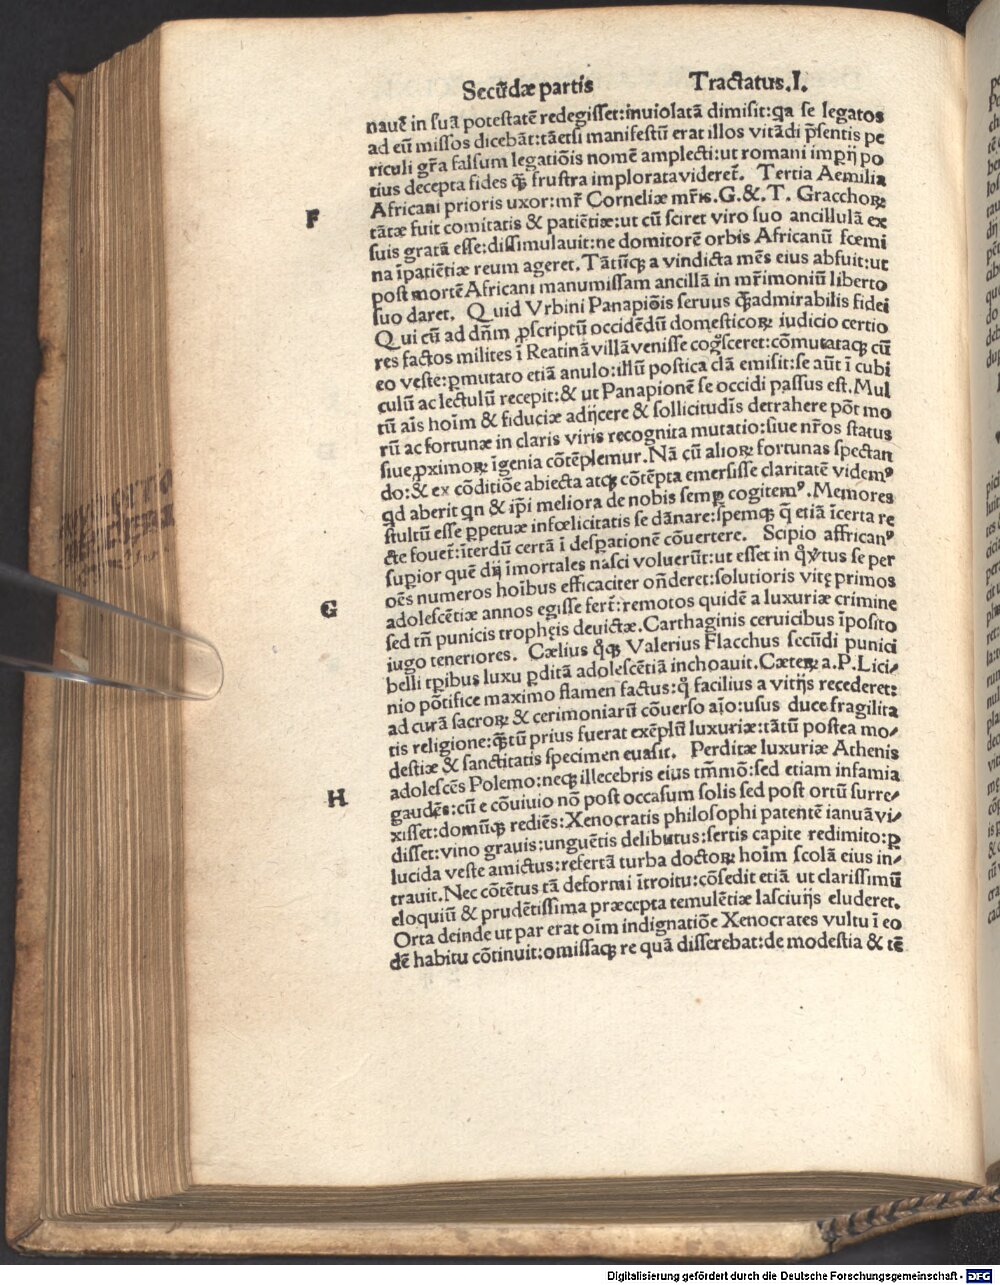 Secūdæ partis Tractatus.I.
nauē in suā potestatē redegisset:inuiolatā dimisit:qa se legatos
ad eū missos dicebāt:tāetsi manifestū erat illos vitādi p̄sentis pe
riculi gr̄a falsum legatiōis nomē amplecti:ut romani imp̄ij po
tius decepta fides q̄ꝫ frustra implorata videret̄. Tertia Aemilia
Africani prioris uxor:mr̄ Corneliæ mr̄is.G.&.T. Gracchoꝝ
F
tātæ fuit comitatis & patiētiæ:ut cū sciret viro suo ancillulā ex
suis gratā esse:dissimulauit:ne domitorē orbis Africanū fœmi
na īpatiētiæ reum ageret.Tātūqꝫ a vindicta mēs eius abfuit:ut
post mortē Africani manumissam ancillā in mr̄imoniū liberto
suo daret. Quid Vrbini Panapiōis seruus q̄ꝫadmirabilis fidei
Qui cū ad dn̄m ꝓscriptū occidēdū domesticoꝝ iudicio certio
res factos milites ī Reatinā villā venisse cogͦsceret:cōmutataqꝫ cū
eo veste:ꝑmutato etiā anulo:illū postica clā emisit:se aūt ī cubi
culū ac lectulū recepit:& ut Panapionē se occidi passus est.Mul
tū aīs hoīm & fiduciæ adijcere & sollicitudīs detrahere pōt mo
rū ac fortunæ in claris viris recognita mutatio:siue nr̄os status
siue ꝓximoꝝ īgenia cōtēplemur.Nā cū alioꝝ fortunas spectan
do:& ex cōditiōe abiecta atqꝫ cōtēpta emersisse claritatē videmꝰ
qd aberit qn & ip̄i meliora de nobis semꝑ cogitemꝰ.Memores
stultū esse ꝑpetuæ infœlicitatis se dānare:spemqꝫ q̄ etiā īcerta re
cte fouet̄:īterdū certā ī desꝑationē cōuertere. Scipio affricanꝰ
suꝑior quē dij īmortales nasci voluerūt:ut esset in qͦ v̓tus se per
oēs numeros hoībus efficaciter on̄deret:solutioris vitę primos
G
adolescētiæ annos egisse fert̄:remotos quidē a luxuriæ crimine
sed tn̄ punicis tropheis deuictæ.Carthaginis ceruicibus īposito
iugo teneriores. Cælius qͦqꝫ Valerius Flacchus secūdi punici
belli tꝑibus luxu ꝑditā adolescētiā inchoauit.Cæteꝝ a.P.Lici⸗
nio pōtifice maximo flamen factus:qͦ facilius a vitijs recederet:
ad curā sacroꝝ & cerimoniarū cōuerso aīo:usus duce fragilita
tis religione:q̄ꝫtū prius fuerat exēplū luxuriæ:tātū postea mo⸗
destiæ & sanctitatis specimen euasit. Perditæ luxuriæ Athenis
adolescēs Polemo:neqꝫ illecebris eius tm̄mō:sed etiam infamia
H
gaudēs:cū e cōuiuio nō post occasum solis sed post ortū surre⸗
xisset:domūqꝫ rediēs:Xenocratis philosophi patentē ianuā vi⸗
disset:vino grauis:unguētis delibutus:sertis capite redimito:ꝑ
lucida veste amictus:refertā turba doctoꝝ hoīm scolā eius in⸗
trauit.Nec cōtētus tā deformi ītroitu:cōsedit etiā ut clarissimū
eloquiū & prudētissima præcepta temulētiæ lasciuijs eluderet.
Orta deinde ut par erat oīm indignatiōe Xenocrates vultu ī eo
dē habitu cōtinuit:omissaqꝫ re quā disserebat:de modestia & tē
Digitalisierung gefördert durch die Deutsche Forschungsgemeinschaft - DFG